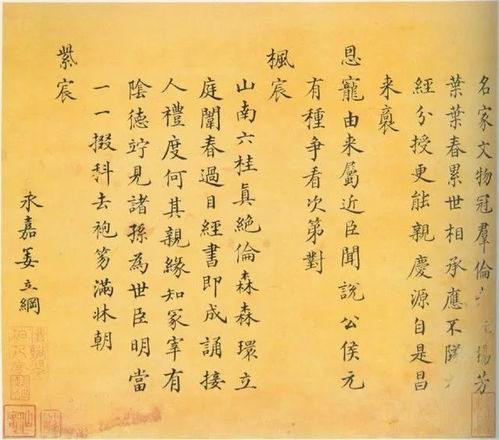 名家文物冠羣倫揚芳
葉葉春累世相承應不
經分授更能親慶源自是昌
来裔
恩寵由来屬近臣聞説公侯元
有種争看次第對
楓宸
山南六桂眞絶倫森森環立
庭闈春過目經書即成誦接
人禮度何其親緣知冢宰有
陰徳竚見諸孫為世臣明當
一一掇科去袍笏滿牀朝
紫宸
永嘉姜立綱